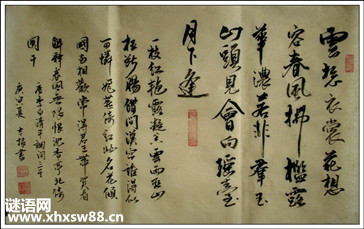 雲想衣裳花想
容春風拂檻露
華濃若非群玉
山頭見會向瑤臺
月下逢
一枝紅艷露凝香雲雨巫山
枉斷腸借問漢宮誰得似
可憐飛燕倚紅妝名花傾
國兩相歡常得君王帶笑看
解釋春風無限恨沉香亭北倚
闌干
唐李白清平調詞三首
庚寅夏書
谜语网
www.xhxsw88.cn